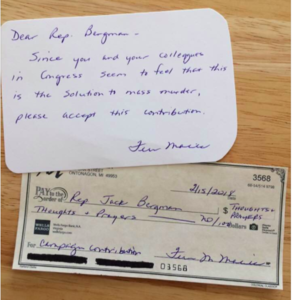 Dear Rep. Bergman -
Since you and your colleagues
in Congress seem to feel that this
is the solution to mass murder,
please accept this contribution.
ONTONAGON, MI
3568
2/15/2018
PAY to the order of Rep Jack Bergman $ Thoughts + Prayers
Thoughts + Prayers no/100 Dollars
For Campaign Contribution
03568